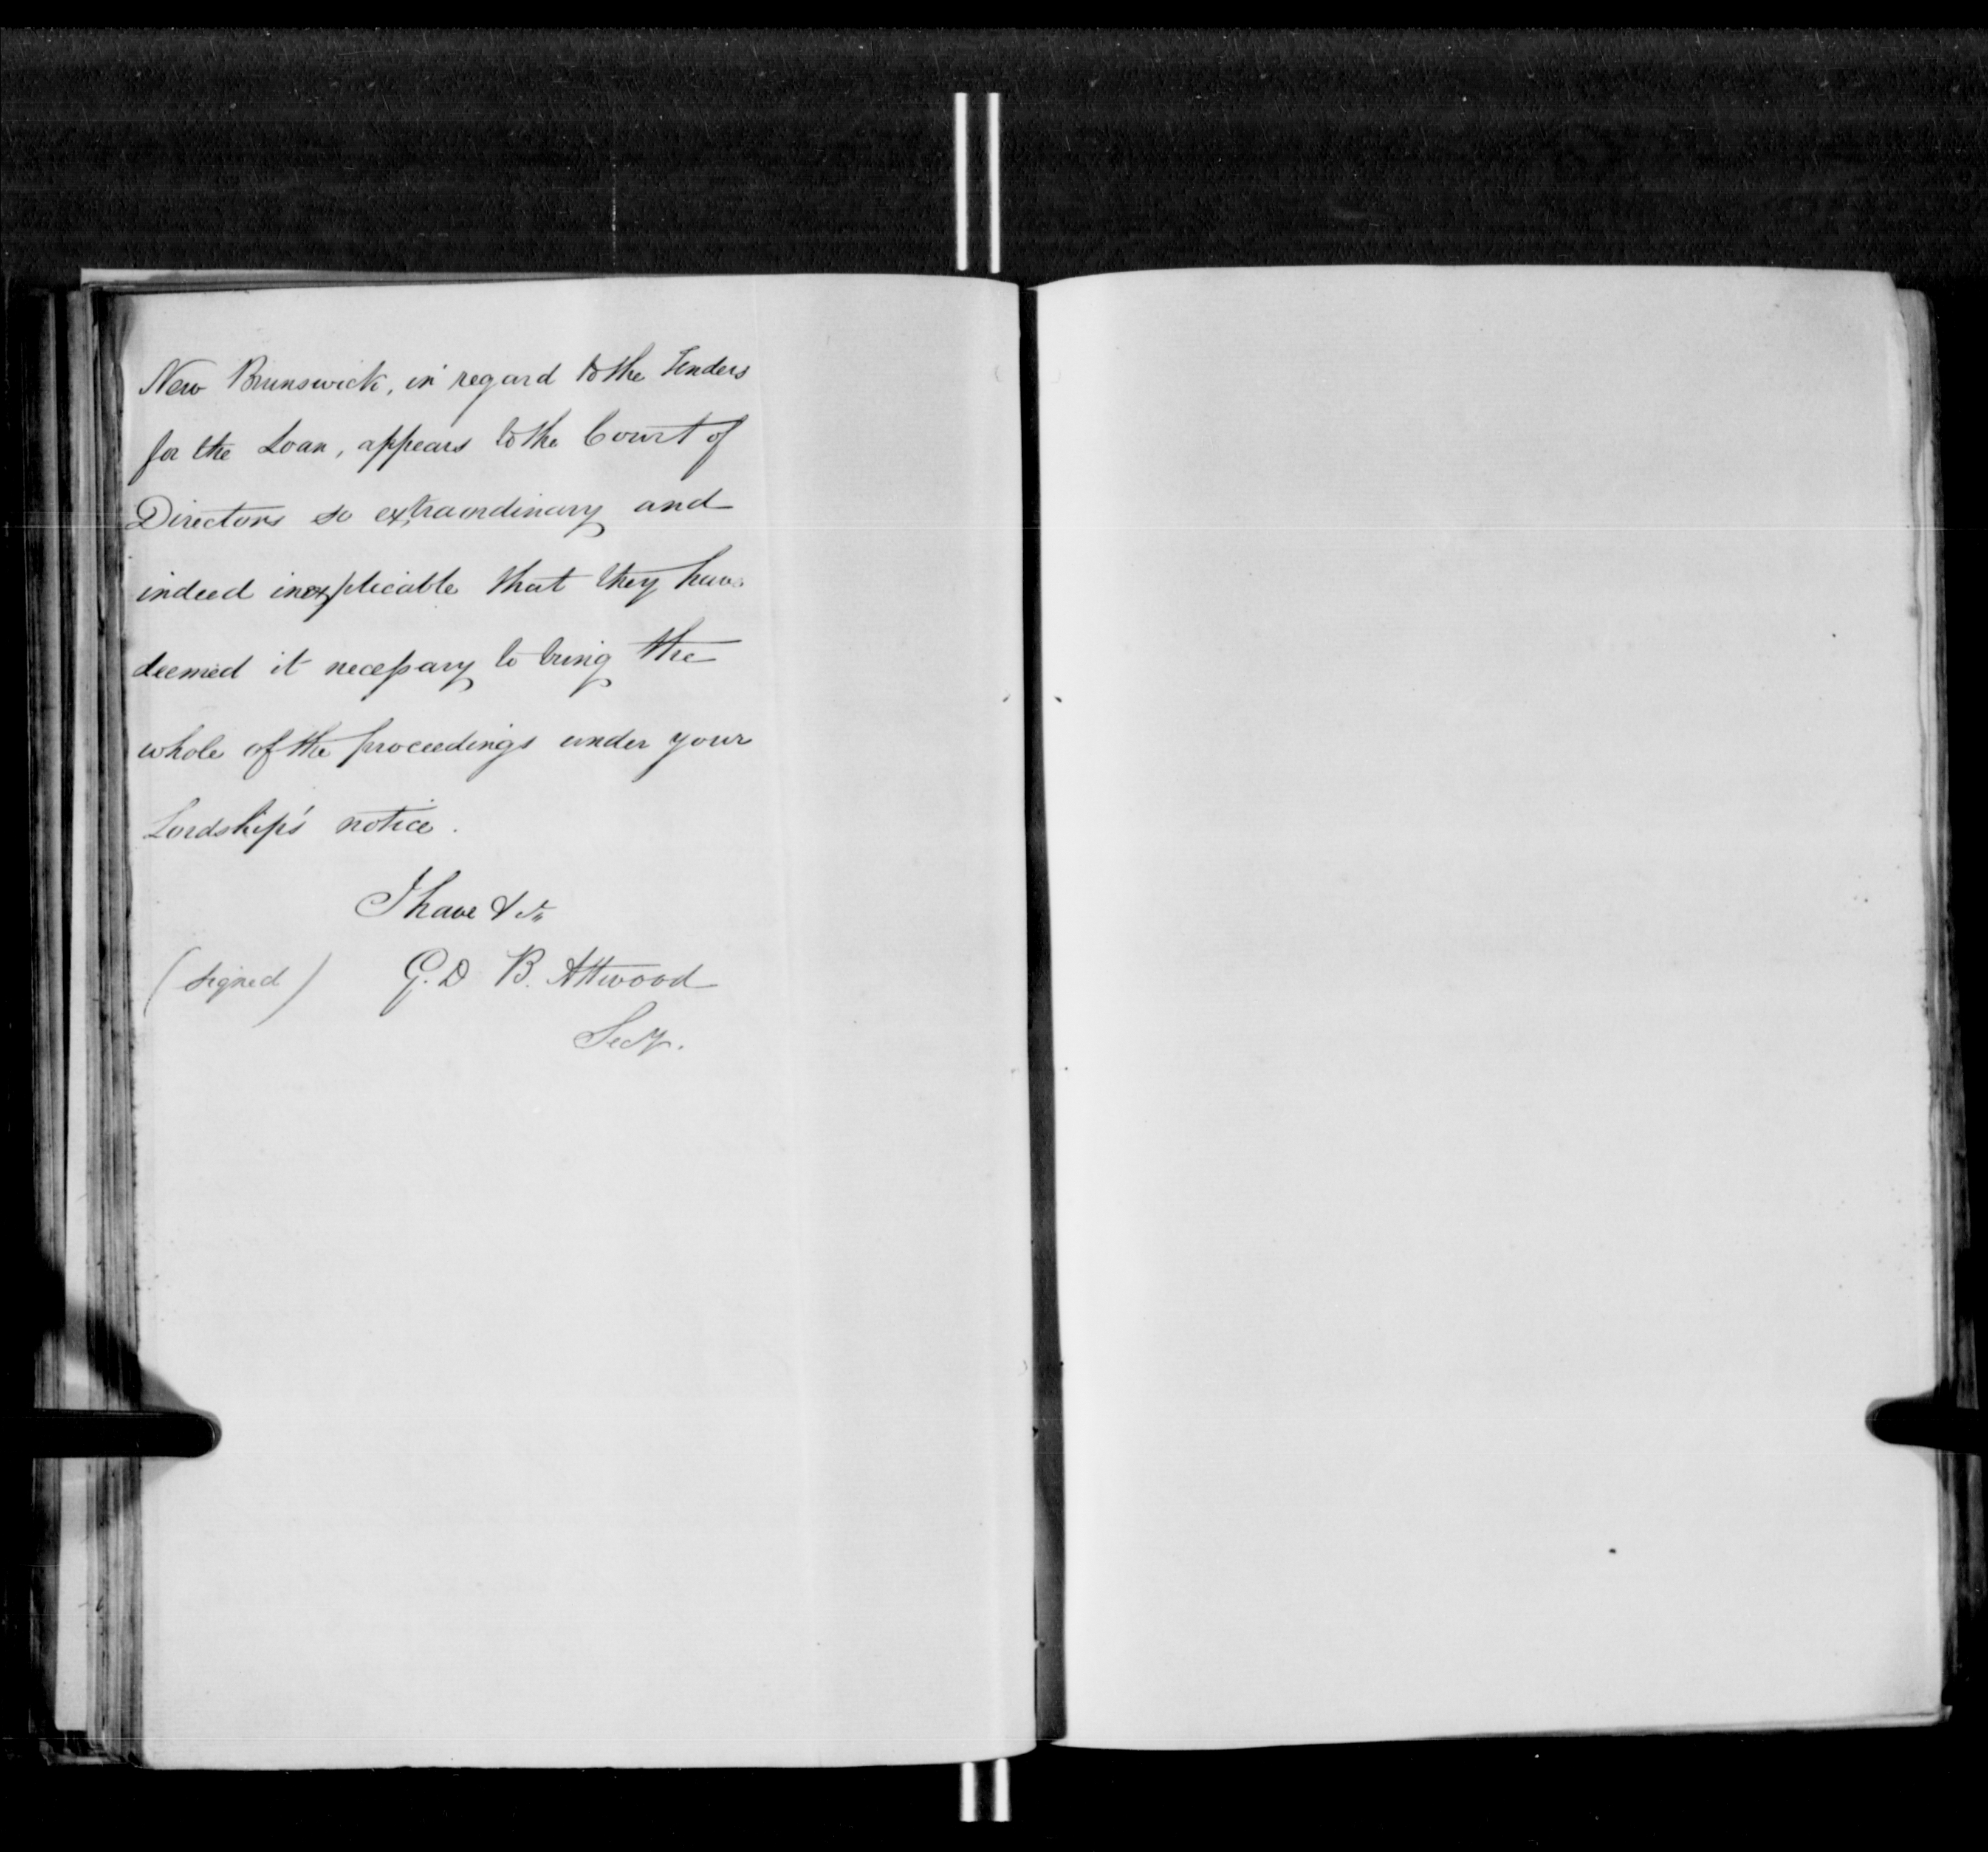 New Brunswick, in regard to the Tenders
for the Loan, appears to the Court of
Directors so extraordinary and
indeed inexplicable that they have
deemed it necessary to bring the
whole of the proceedings under your
Lordship's notice.
I have &c
(signed) G. D B. Attwood
Secy.